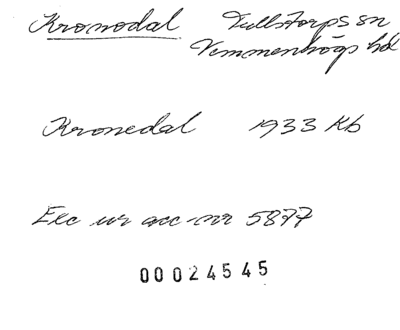 Kronodal Tullstorps sn
Vemmenhögs hd
Kronedal 1933 Kb
Exc ur acc-nr 5877
00024545